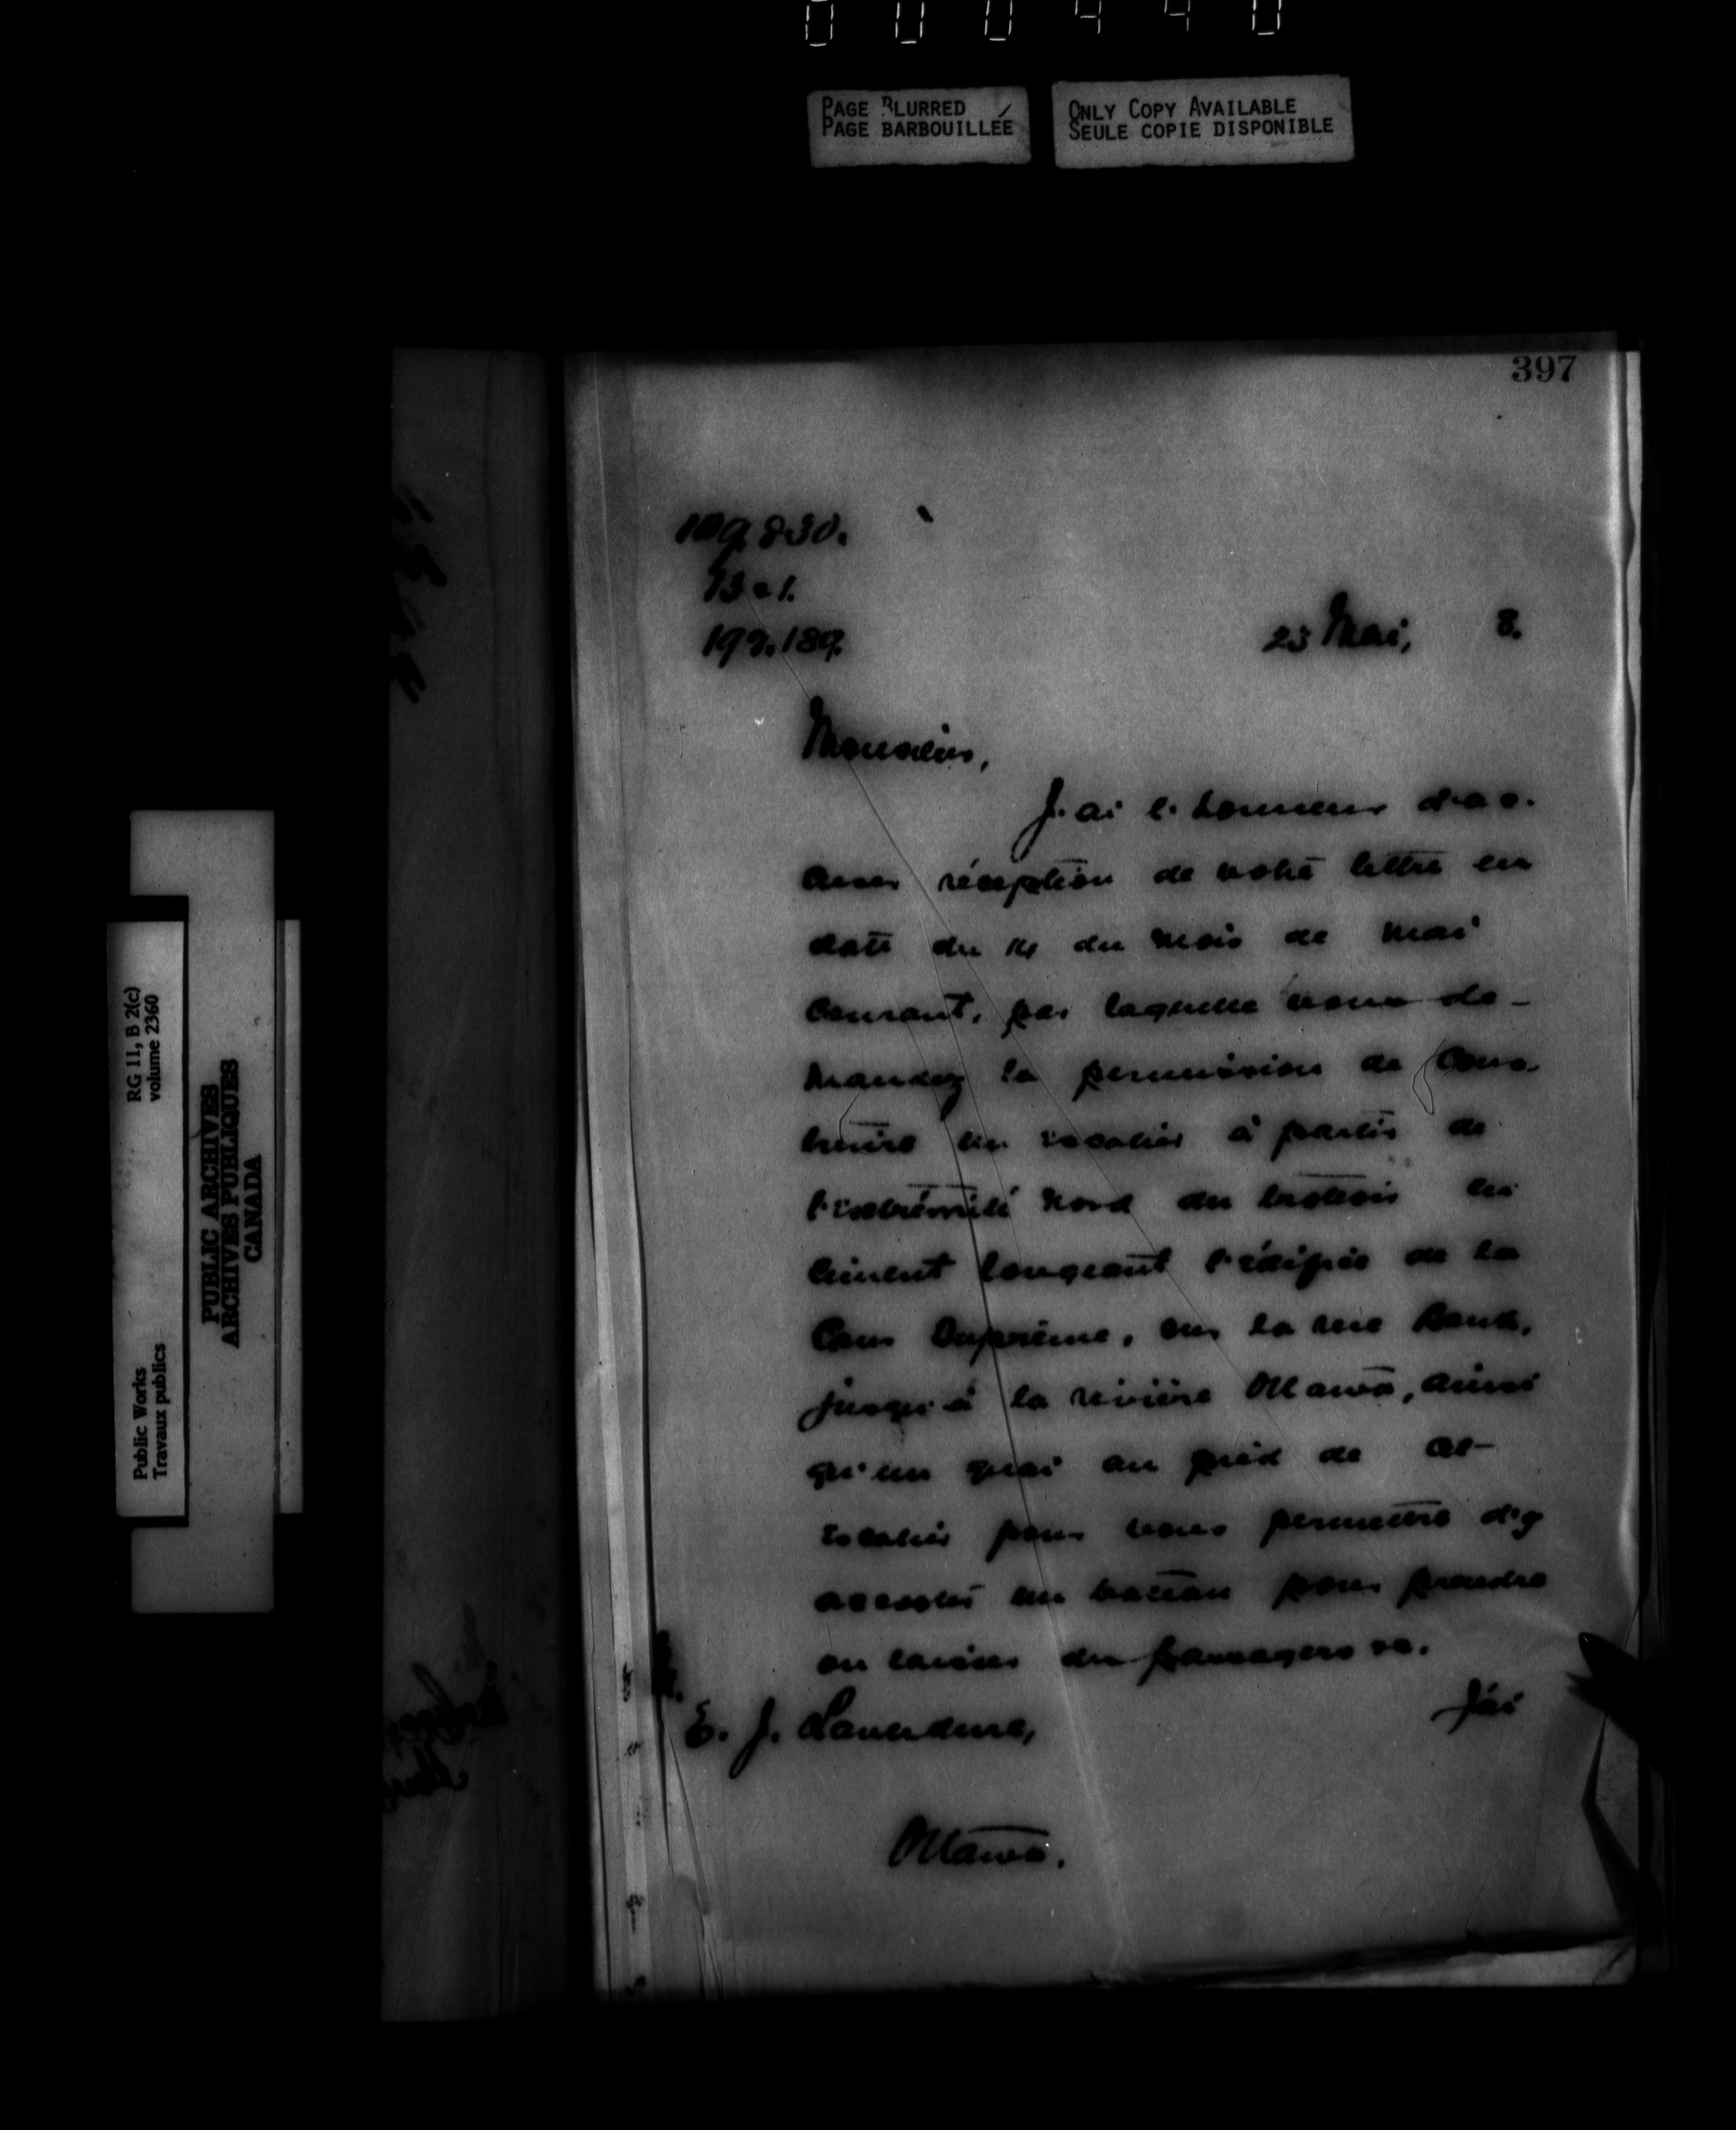 000440
PAGE BLURRED
PAGE BARBOUILLÉE
ONLY COPY AVAILABLE
SEULE COPIE DISPONIBLE
397
109.830.
B-1.
198.189.
23 Mai, 8.
Monsieur,
J'ai l'honneur d'ac-
cuser réception de votre lettre en
date du 14 du mois de mai
courant, par laquelle vous de-
mandez la permission de cons-
truire un escalier à partir de
l'extrémité nord du trottoir en
ciment longeant l'édifice de la
Cour Suprême, sur la rue Bank,
jusqu'à la rivière Ottawa, ainsi
qu'un quai au pied de cet
escalier pour vous permettre d'y
accoster un bateau pour prendre
ou laisser des passagers &c.
J'ai
E. J. Laverdure,
Ottawa.
RG 11, B 2(c)
volume 2360
Public Works
Travaux publics
PUBLIC ARCHIVES
ARCHIVES PUBLIQUES
CANADA